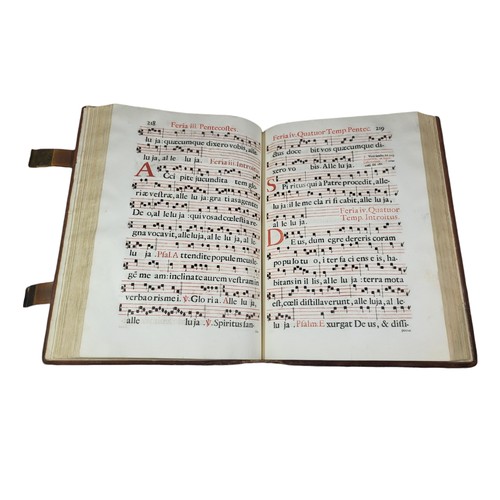 218 Feria iii. Pentecostes.
luja: quæcumque dixero vobis, alle
lu ja, al le lu ja. Feria iii. Introitus.
AC ci pite jucundita tem glo
riæ vestræ, alle lu ja: gra ti as agentes
De o, al le lu ja: qui vos ad cœlestia re
gna vocavit, alle lu ja, alle lu ja, alle
lu ja. Psal. A ttendite popule meus le
gē me am: inclinate aurem vestram in
verba oris me i. ℣. Glo ri a. Alle lu ja
alle lu ja. ℣. Spiritus sanc
Feria iv. Quatuor Temp. Pentec. 219
ctus doce bit vos quæcumque di-
xero vo bis. Alle lu ja.
SPi ritus qui à Patre procedit, alle-
lu ja: il le me cla ri fi cabit, alle lu ja,
al le lu ja. Feria iv. Quatuor
Temp. Introitus.
DE us, dum egre dereris coram
popu lo tu o, i ter fa ci ens e is, ha-
bitans in il lis, alle lu ja: terra mota
est, cœli distillaverunt, alle lu ja, al le-
lu ja. Psalm. E xurgat De us, & dissi-